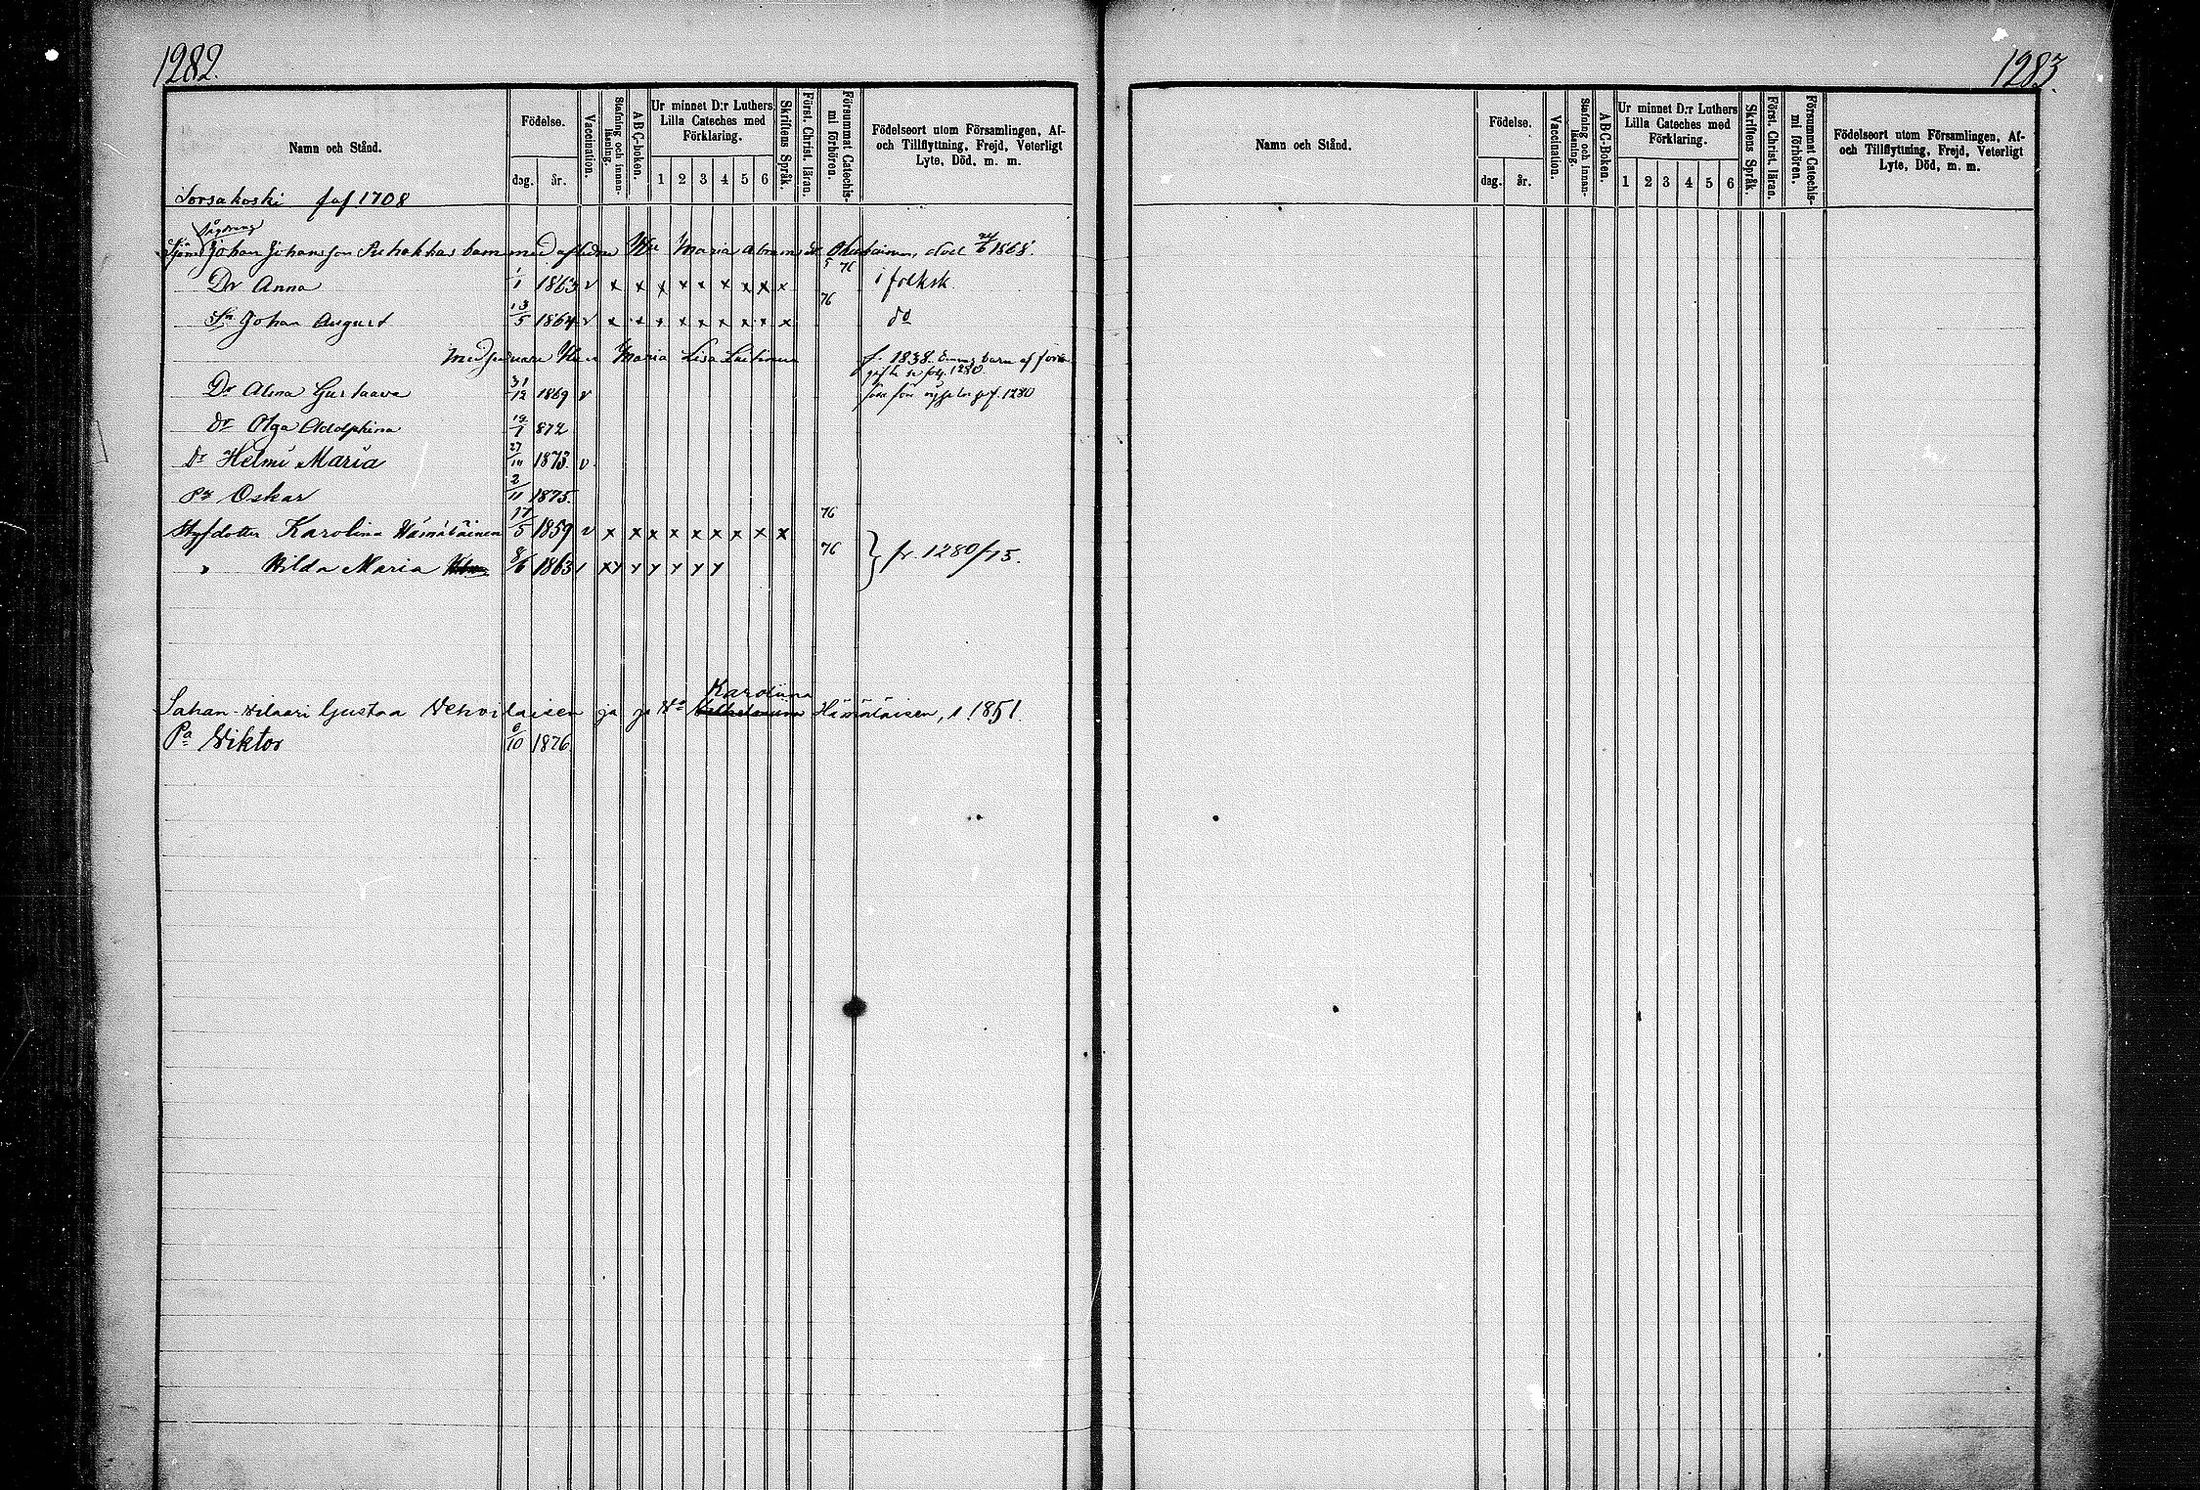 1282.
1283.
Namn och Stånd.
Födelse.
dag.
år.
Vaccination.
Stafning och innan-
läsning.
A B C-boken.
Ur minnet D:r Luthers
Lilla Cateches med
Förklaring.
1 2 3 4 5 6
Skriftens Språk.
Först. Christ. läran.
Försummat Catechis-
mi förhören.
Födelseort utom Församlingen, Af-
och Tillflyttning, Frejd, Veterligt
Lyte, Död, m. m.
Sorsakoski 1708
Johan Johansson barn med aflidne Maria död 1868.
76
Dr Anna 1/1 1863 v x x x x x x x x x i folksk.
76
Sn Johan August 13/5 1864 v x x x x x x x x x do
Maria Lisa f. 1838. barn af
1280
Dr Alma Gustaava 31/12 1869 v 1280
dr Olga Adolphina 872
Dr Helmi Maria 27 1873. v
Oskar 2/11 1875.
76
Styfdotter Karolina Hämäläinen 17/5 1859 v x x x x x x x x x
76
" Hilda Maria 8/6 1863 } fr. 1280/75.
Karoliina
Sahan Gustaa Vehvilaisen ja Hämäläisen, s. 1851.
Pa Viktor 6/10 1876.
Namn och Stånd.
Födelse.
dag. år.
Vaccination.
Stafning och innan-
läsning.
A B C-Boken.
Ur minnet D:r Luthers
Lilla Cateches med
Förklaring.
1 2 3 4 5 6
Skriftens Språk.
Först. Christ. läran.
Försummat Catechis-
mi förhören.
Födelseort utom Församlingen, Af-
och Tillflyttning, Frejd, Veterligt
Lyte, Död, m. m.